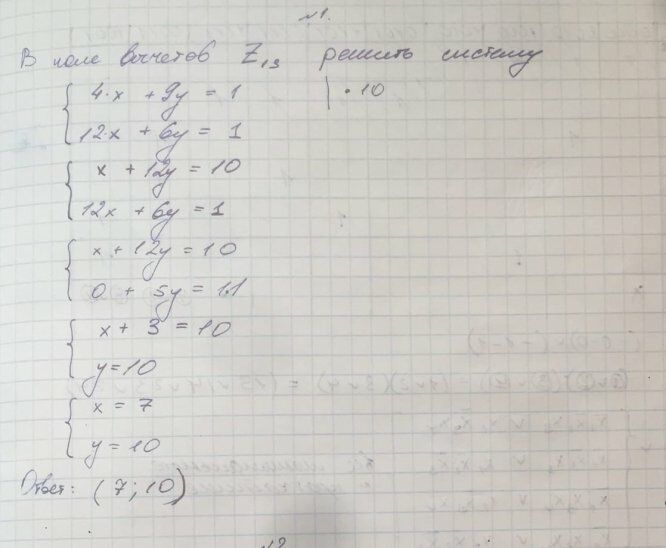 №1.
В поле вычетов Z₁₃ решить систему
4·x + 9y = 1 | · 10
12·x + 6y = 1
x + 12y = 10
12x + 6y = 1
x + 12y = 10
0 + 5y = 11
x + 3 = 10
y = 10
x = 7
y = 10
Ответ: (7; 10)
№2